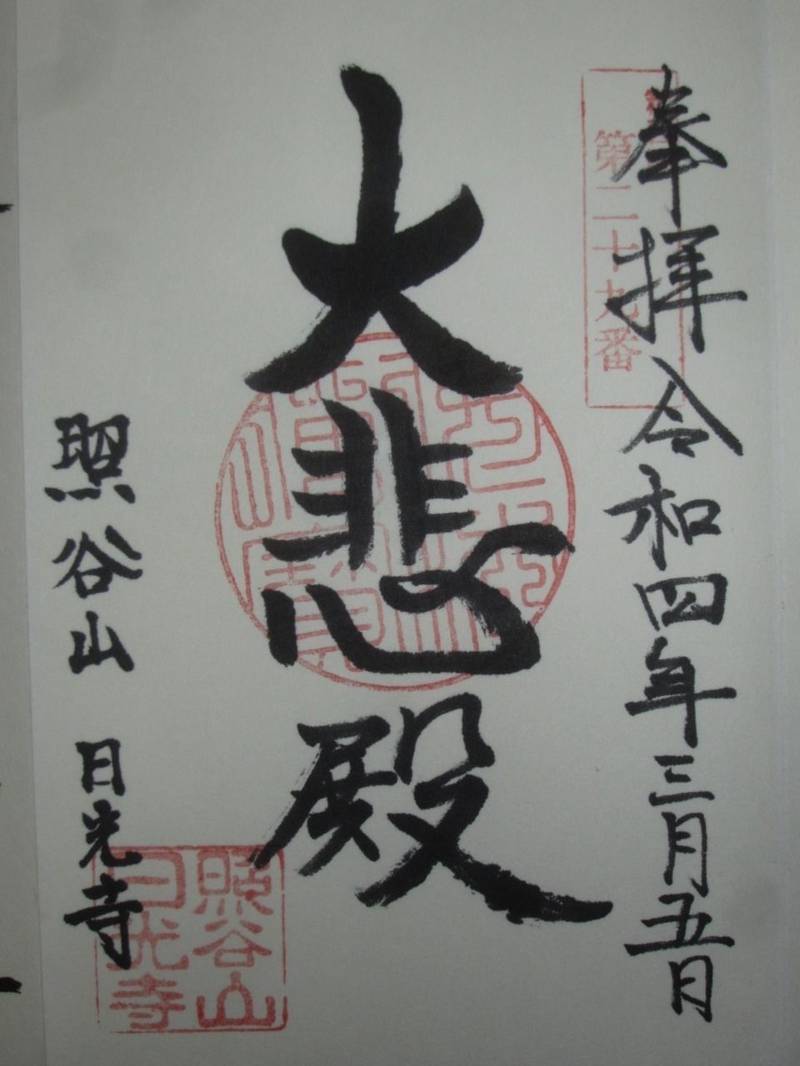 奉拝 令和四年三月五日
第二十九番
大悲殿
照谷山 日光寺
照谷山
日光寺